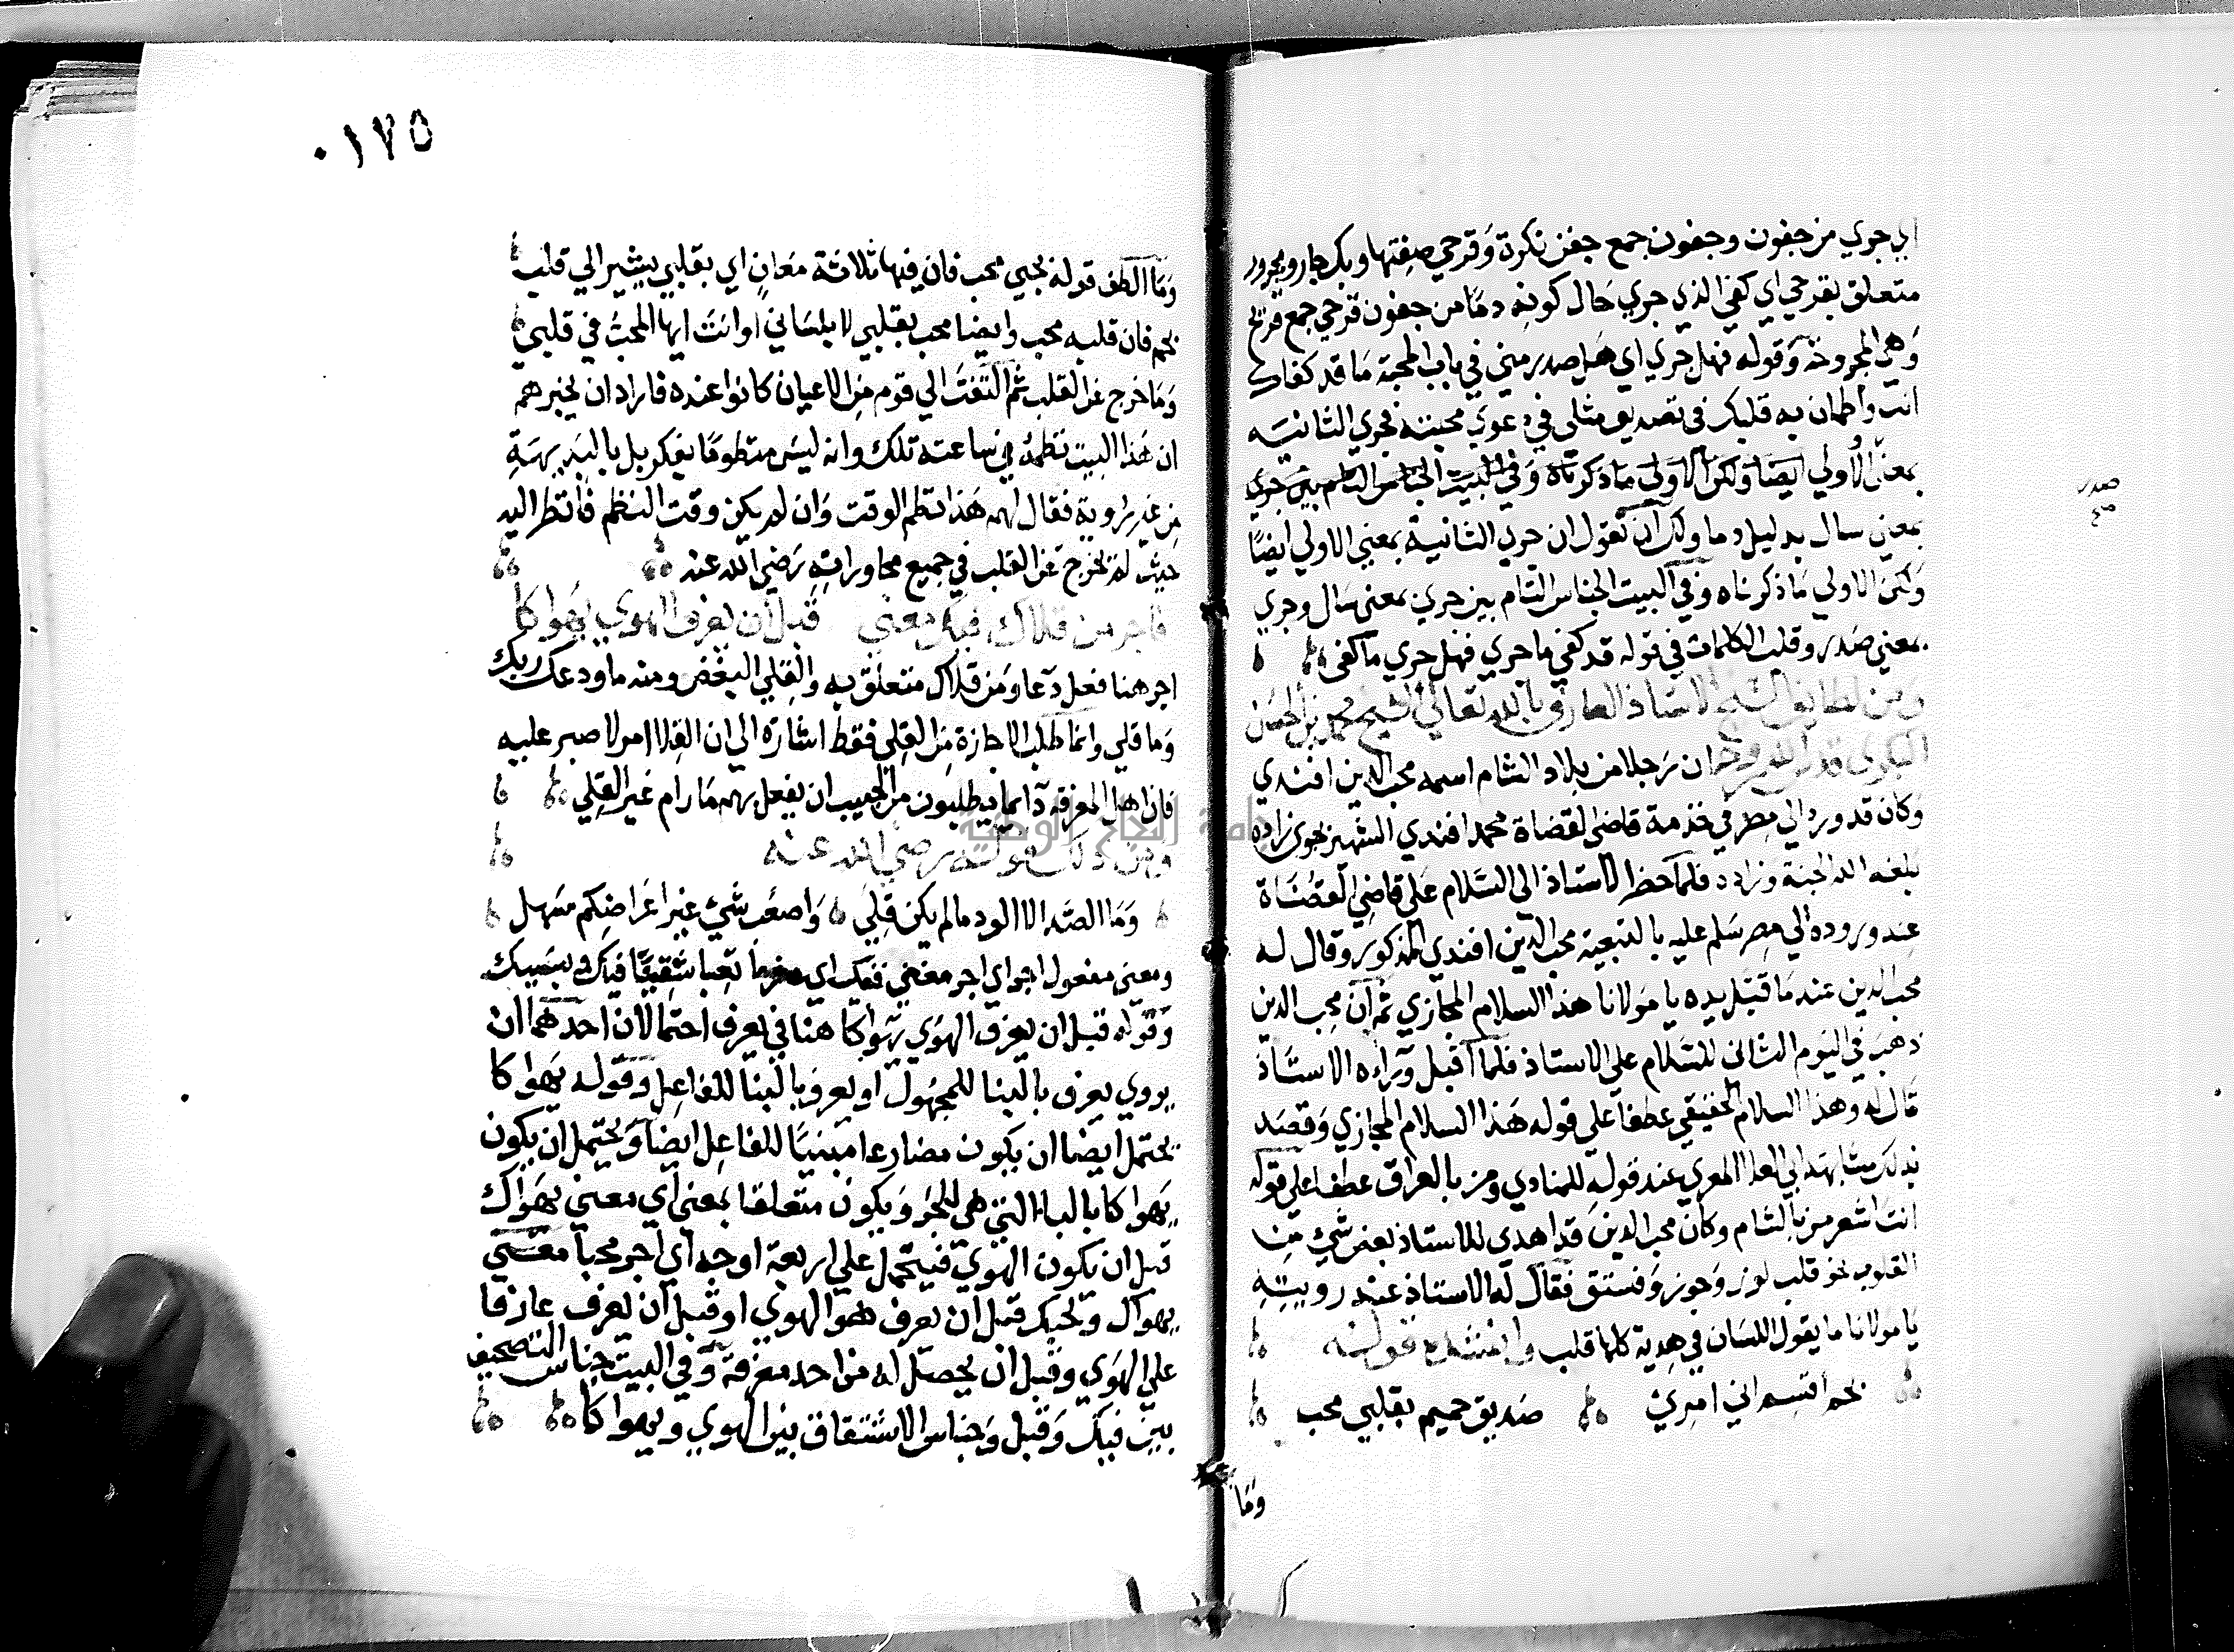 اي جري من جفون وجفون جمع جفن نكرة وقرحي صفتها وبك جار ومجرور
متعلق بقرحي اي كفي الذي جري حال كونه دما من جفون قرحي جمع قريح
وهي المجروحة وقوله فهل جري اي هل صدر مني في باب المحبة ما قد كفاك
انت واطمان به قلبك في تصديق مثلي في دعوي محبته فجري الثانيه
بمعني الاولي ايضا ولكن الاولي ما ذكرناه وفي البيت الجناس التام بين جري
صدر
صح
بمعني سال بدليل دما ولك ان تقول ان جري الثانية بمعني الاولي ايضا
ولكن الاولي ما ذكرناه وفي البيت الجناس التام بين جري بمعني سال وجري
بمعني صدر وقلب الكلمات في قوله قد كفي ما جري فهل جري ما كفي
ومن لطايف الشيخ الاستاذ العارف بالله تعالي الشيخ محمد بن الحسن
البكري قدس الله روحه ان رجلا من بلاد الشام اسمه محب الدين افندي
وكان قد ورد الي مصر في خدمة قاضي القضاة محمد افندي الشهير بجوي زاده
بلغه الله الجنة وزاده فلما حضر الاستاذ الي السلام علي قاضي القضاة
عند وروده الي مصر سلم عليه بالتبعية محب الدين افندي المذكور وقال له
محب الدين عند ما قبل يده يا مولانا هذا السلام المجازي ثم ان محب الدين
ذهب في اليوم الثاني للسلام علي الاستاذ فلما اقبل وراءه الاستاذ
قال له وهذا السلام الحقيقي عطفا علي قوله هذا السلام المجازي وقصد
بذلك مشابهة ابي العلا المعري عند قوله للمنادي ومن بالعراق عطفا علي قوله
انت اشعر من بالشام وكان محب الدين قد اهدي للاستاذ بعض شيء من
القلوب نحو قلب لوز وجوز وفستق فقال له الاستاذ عند رويته
يا مولانا ما يقول اللسان في هدية كلها قلب وانشده قوله
بخم اقسم اني امرئ صديق حميم بقلبي محب
وما
٠١٧٥
وما الطف قوله بقلبي محب فان فيها ثلاثة معان اي بقلبي يشير الي قلب
بخم فان قلبه محب وايضا محب بقلبي لا بلساني او انت ايها المحب في قلبي
وما خرج عن القلب ثم التفت الي قوم من الاعيان كانوا عنده فاراد ان يخبرهم
ان هذا البيت نظمه في ساعته تلك وانه ليس منظوما بفكر بل بالبديهة
من غير روية فقال لهم هذا نظم الوقت وان لم يكن وقت النظم فانظر اليه
حيث لم يخرج عن القلب في جميع محاوراته رضي الله عنه
فاجر من قلاك فيك معني قبل ان يعرف الهوي يهواكا
اجر هنا فعل دعا ومن قلاك متعلق به والقلي البغض ومنه ما ودعك ربك
وما قلي وانما طلب الاجازة من القلي فقط اشارة الي ان القلا امر لا صبر عليه
فان اهل المعرفه دائما يطلبون من الحبيب ان يفعل بهم ما رام غير القلي
ومن ذلك قوله رضي الله عنه
وما الصد الا الود ما لم يكن قلي واصعب شيء غير اعراضكم سهل
ومعني مفعول اجر اي اجر معني فيك اي مغرما تعبا شقيقا فيك وبسببك
وقوله قبل ان يعرف الهوي يهواكا هنا في يعرف احتمالان احدهما ان
يروي يعرف بالبنا للمجهول او يعرف بالبنا للفاعل وقوله يهواكا
يحتمل ايضا ان يكون مضارعا مبنيا للفاعل ايضا ويحتمل ان يكون
بهواكا بالباء التي هي للجر ويكون متعلقا بمعني اي معني بهواك
قبل ان يكون الهوي فيتحمل علي اربعة اوجه اي اجر محبا معني
يهواك ويحبك قبل ان يعرف هو الهوي او قبل ان يعرف عارفا
علي الهوي وقبل ان يحصل له من احد معرفة وفي البيت جناس التصحيف
بين فيك وقبل وجناس الاشتقاق بين الهوي ويهواكا